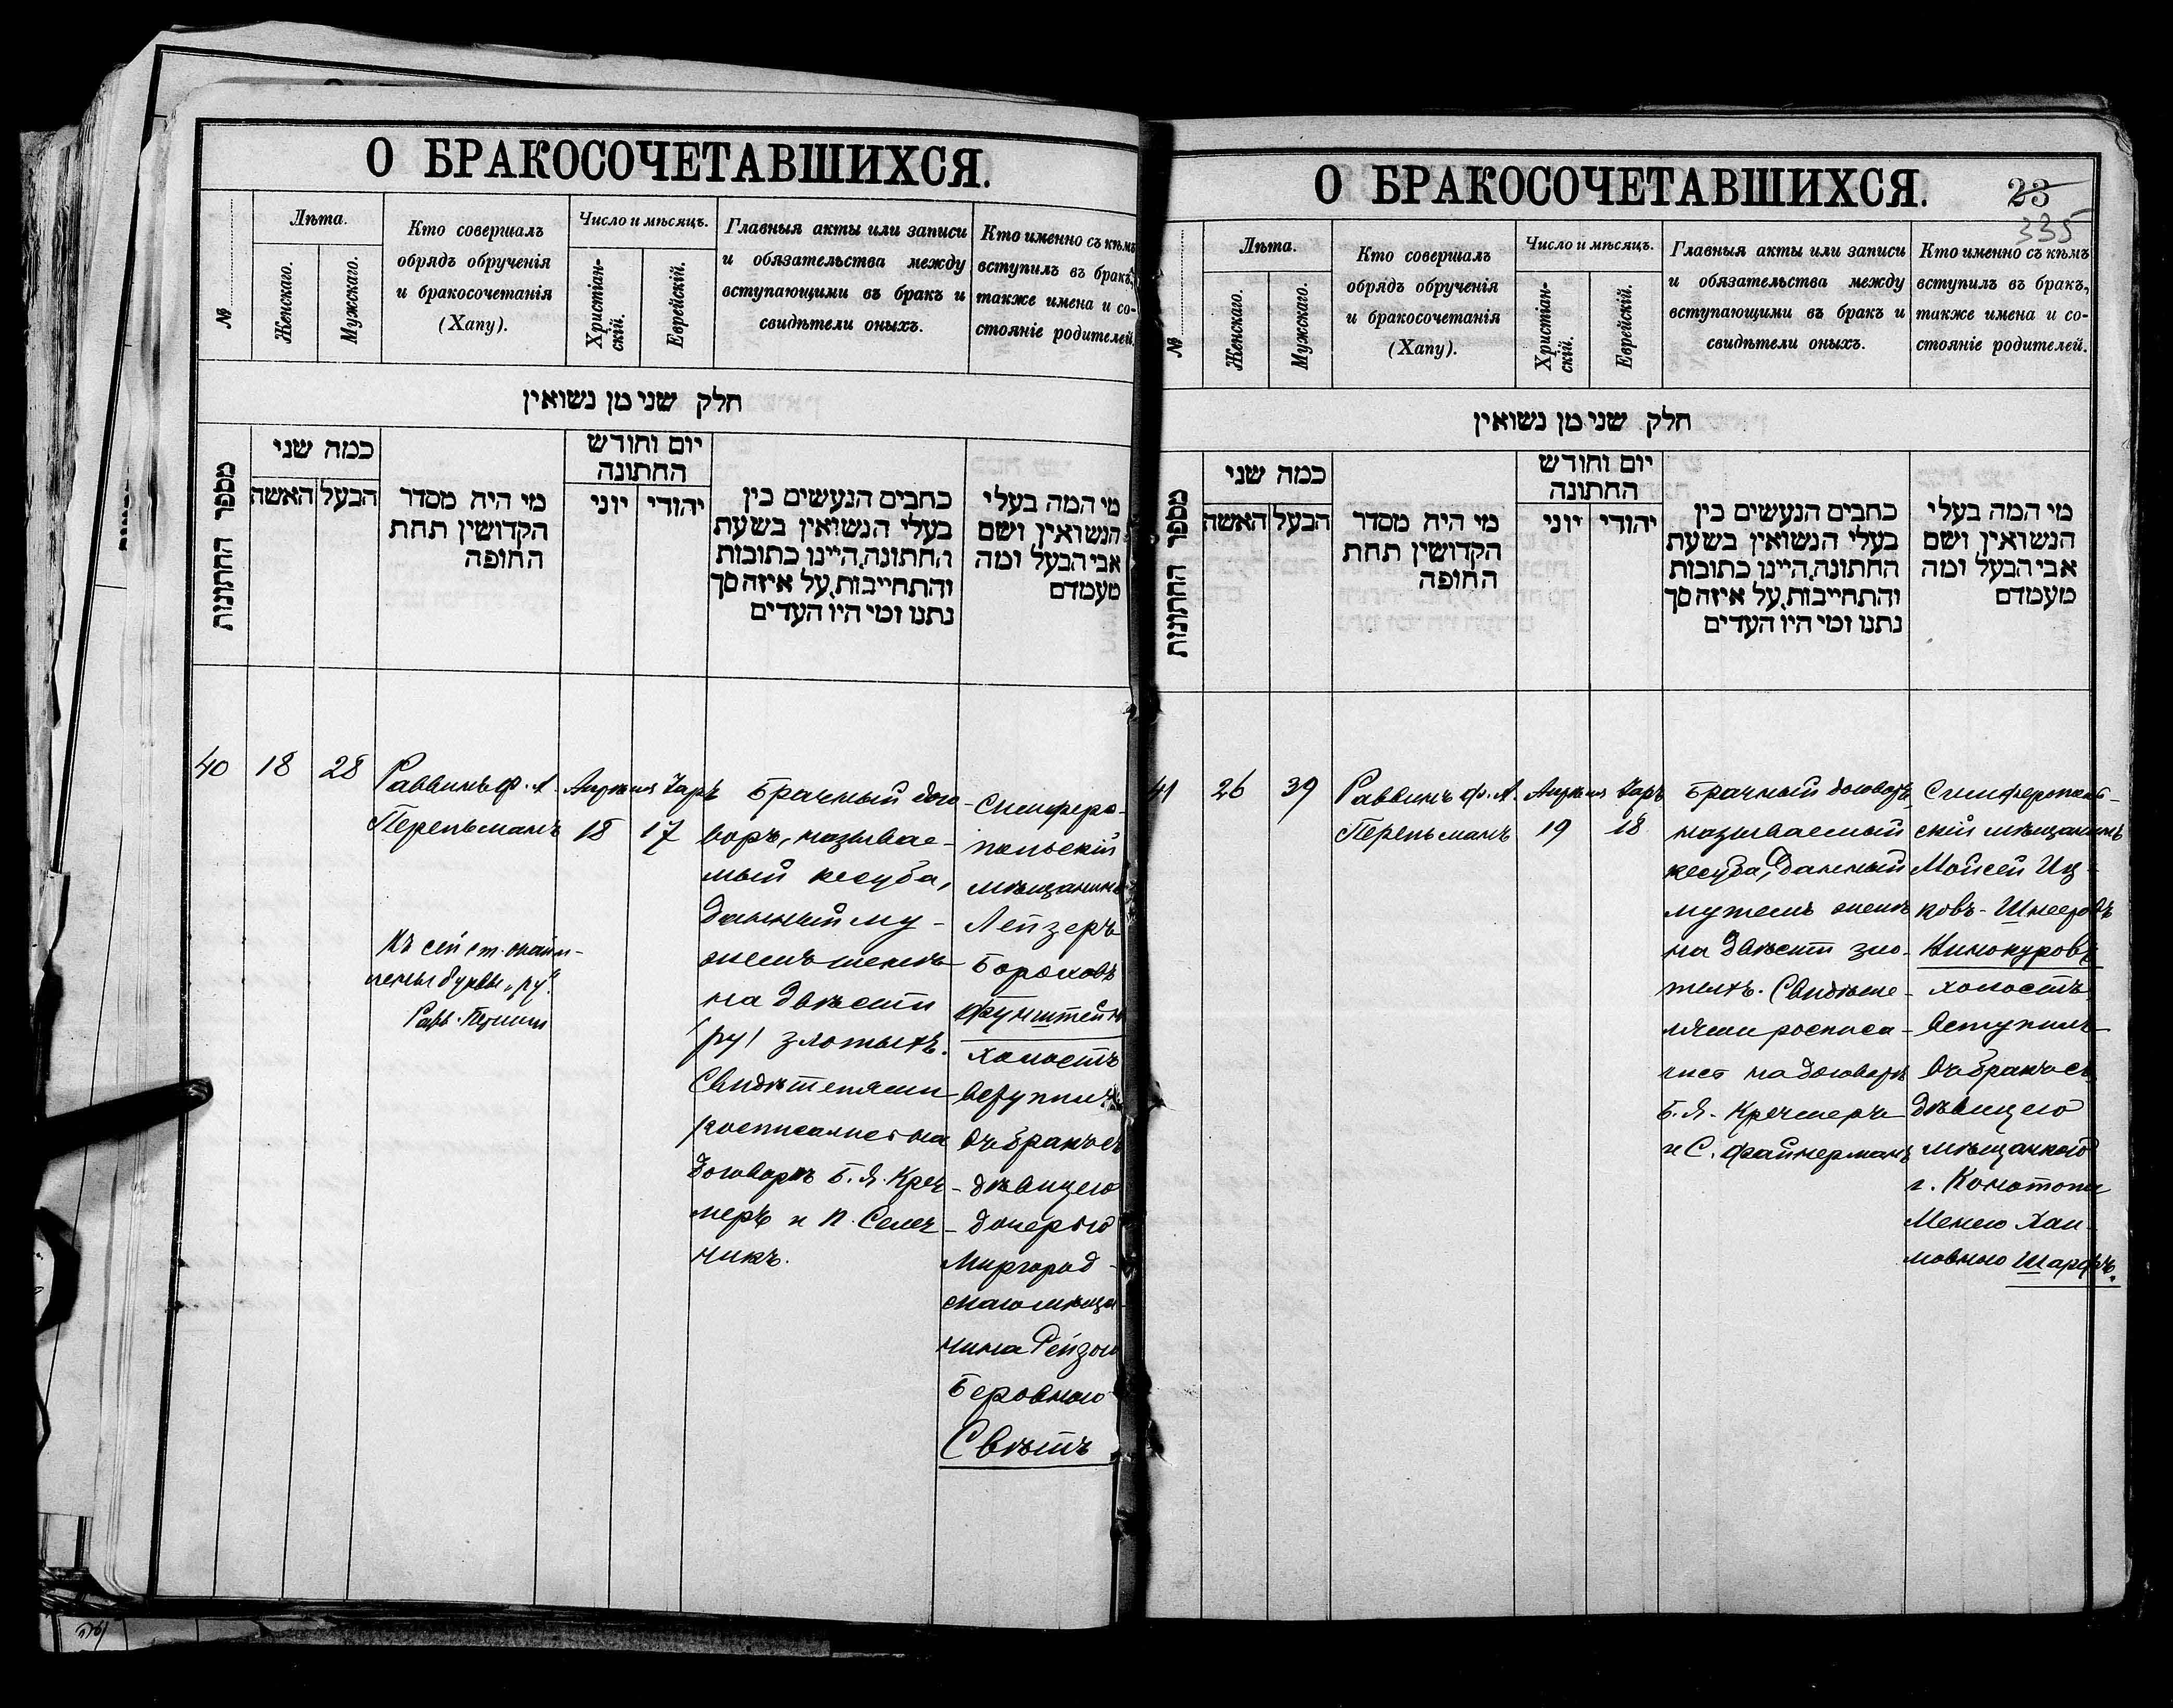 О БРАКОСОЧЕТАВШИХСЯ.
№
Лѣта.
Женскаго.
Мужскаго.
Кто совершалъ
обрядъ обрученія
и бракосочетанія
(Хапу).
Число и мѣсяцъ.
Христіан-
скій.
Еврейскій.
Главныя акты или записи
и обязательства между
вступающими въ бракъ и
свидѣтели оныхъ.
Кто именно съ кѣмъ
вступилъ въ бракъ,
также имена и со-
стояніе родителей.
חלק שני מן נשואין
מספר החתונות
כמה שני
הבעל
האשה
מי היה מסדר
הקדושין תחת
החופה
יום וחודש
החתונה
יהודי
יוני
כתבים הנעשים בין
בעלי הנשואין בשעת
החתונה, היינו כתובות
והתחייבות, על איזה סך
נתנו ומי היו העדים
מי המה בעלי
הנשואין ושם
אבי הבעל ומה
מעמדם
40
18
28
Раввинъ Ф. А.
Перельманъ
Къ сей ст.
буквы „ру“.
Рав.
Апрѣля
18
Iаръ
17
Брачный дого-
воръ, называе-
мый кесуба,
данный му-
жемъ женѣ
на двѣсти
(ру) злотыхъ.
Свидѣтелями
росписались на
договорѣ Б. Я. Креч-
меръ и П. Селеч-
никъ.
Симферо-
польскій
мѣщанинъ
Лейзеръ
Бороховъ
Фунштейнъ
холостъ
вступилъ
въ бракъ съ
дѣвицею
дочерью
Миргород-
скаго мѣща-
нина Рейзою
Беровною
Свѣтъ
О БРАКОСОЧЕТАВШИХСЯ.
23
335
№
Лѣта.
Женскаго.
Мужскаго.
Кто совершалъ
обрядъ обрученія
и бракосочетанія
(Хапу).
Число и мѣсяцъ.
Христіан-
скій.
Еврейскій.
Главныя акты или записи
и обязательства между
вступающими въ бракъ и
свидѣтели оныхъ.
Кто именно съ кѣмъ
вступилъ въ бракъ,
также имена и со-
стояніе родителей.
חלק שני מן נשואין
מספר החתונות
כמה שני
הבעל
האשה
מי היה מסדר
הקדושין תחת
החופה
יום וחודש
החתונה
יהודי
יוני
כתבים הנעשים בין
בעלי הנשואין בשעת
החתונה, היינו כתובות
והתחייבות, על איזה סך
נתנו ומי היו העדים
מי המה בעלי
הנשואין ושם
אבי הבעל ומה
מעמדם
41
26
39
Раввинъ Ф. А.
Перельманъ
Апрѣля
19
Iаръ
18
Брачный договоръ,
называемый
кесуба, данный
мужемъ женѣ
на двѣсти зло-
тыхъ. Свидѣте-
лями росписа-
лись на договорѣ
Б. Я. Кречмеръ
и С. Файнерманъ
Симферополь-
скій мѣщанинъ
Мойсей Иц-
ковъ-Шнееровъ
Винокуровъ
холостъ
вступилъ
въ бракъ съ
дѣвицею
мѣщанкой
г. Конотопа
Менею Хаи-
мовною Шарфъ.